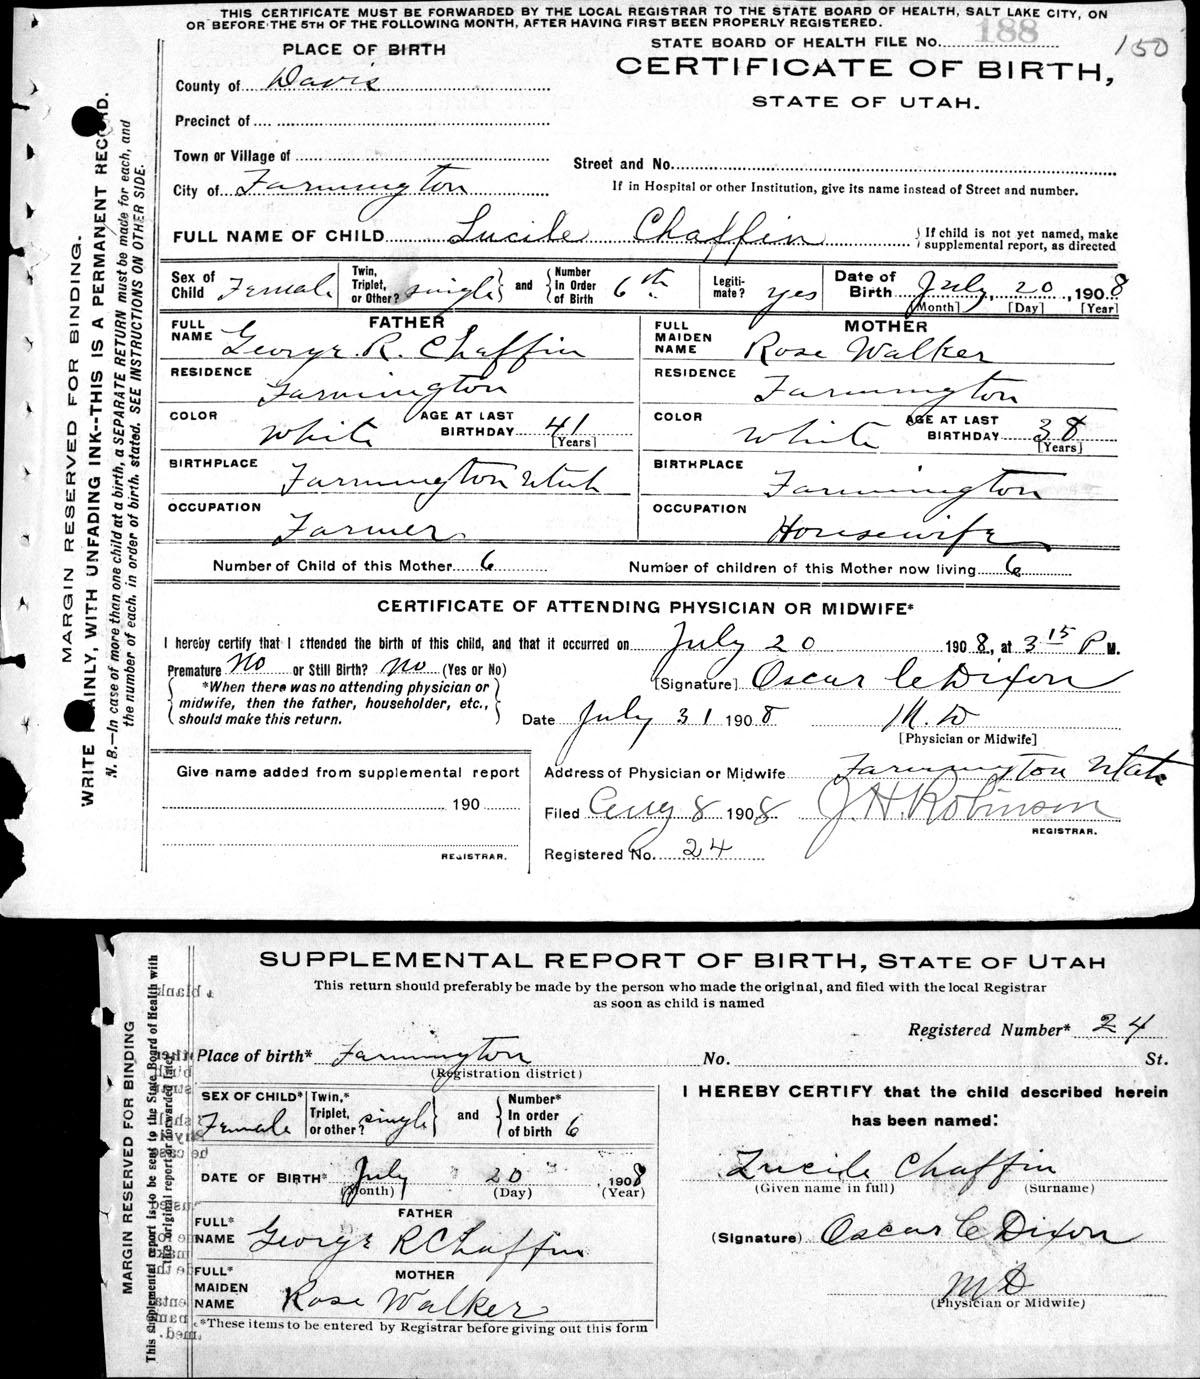 THIS CERTIFICATE MUST BE FORWARDED BY THE LOCAL REGISTRAR TO THE STATE BOARD OF HEALTH, SALT LAKE CITY, ON
OR BEFORE THE 5TH OF THE FOLLOWING MONTH, AFTER HAVING FIRST BEEN PROPERLY REGISTERED.
PLACE OF BIRTH
STATE BOARD OF HEALTH FILE No. 188
150
County of Davis
CERTIFICATE OF BIRTH,
STATE OF UTAH.
Precinct of
Town or Village of
Street and No.
City of Farmington
If in Hospital or other Institution, give its name instead of Street and number.
FULL NAME OF CHILD Lucile Chaffin { If child is not yet named, make supplemental report, as directed
Sex of Child Female Twin, Triplet, or Other? single } and { Number In Order of Birth 6th Legiti-mate? yes Date of Birth July, 20, 1908
[Month] [Day] [Year]
FATHER
FULL NAME George. R. Chaffin
RESIDENCE Farmington
COLOR White AGE AT LAST BIRTHDAY 41 [Years]
BIRTHPLACE Farmington Utah
OCCUPATION Farmer
MOTHER
FULL MAIDEN NAME Rose Walker
RESIDENCE Farmington
COLOR White AGE AT LAST BIRTHDAY 38 [Years]
BIRTHPLACE Farmington
OCCUPATION Housewife
Number of Child of this Mother 6 Number of children of this Mother now living 6
CERTIFICATE OF ATTENDING PHYSICIAN OR MIDWIFE*
I hereby certify that I attended the birth of this child, and that it occurred on July 20 1908, at 3 15 P M.
Premature No or Still Birth? No (Yes or No)
{ *When there was no attending physician or midwife, then the father, householder, etc., should make this return. }
[Signature] Oscar C Dixon
Date July 31 1908 M. D
[Physician or Midwife]
Give name added from supplemental report
190
REGISTRAR.
Address of Physician or Midwife Farmington Utah
Filed Aug 8 1908 J. H. Robinson
REGISTRAR.
Registered No. 24
MARGIN RESERVED FOR BINDING.
WRITE PLAINLY, WITH UNFADING INK--THIS IS A PERMANENT RECORD.
N. B.—In case of more than one child at a birth, a SEPARATE RETURN must be made for each, and
the number of each, in order of birth, stated. SEE INSTRUCTIONS ON OTHER SIDE.
SUPPLEMENTAL REPORT OF BIRTH, STATE OF UTAH
This return should preferably be made by the person who made the original, and filed with the local Registrar
as soon as child is named
Registered Number* 24
Place of birth* Farmington No. St.
(Registration district)
SEX OF CHILD* Female Twin,* Triplet, or other? single } and { Number* In order of birth 6
DATE OF BIRTH* July 20 , 1908
(Month) (Day) (Year)
FATHER
FULL* NAME George R Chaffin
MOTHER
FULL* MAIDEN NAME Rose Walker
*These items to be entered by Registrar before giving out this form
I HEREBY CERTIFY that the child described herein
has been named:
Lucile Chaffin
(Given name in full) (Surname)
(Signature) Oscar C Dixon
M D
(Physician or Midwife)
MARGIN RESERVED FOR BINDING
This supplemental report is to be sent to the State Board of Health with
the original report or forwarded later.